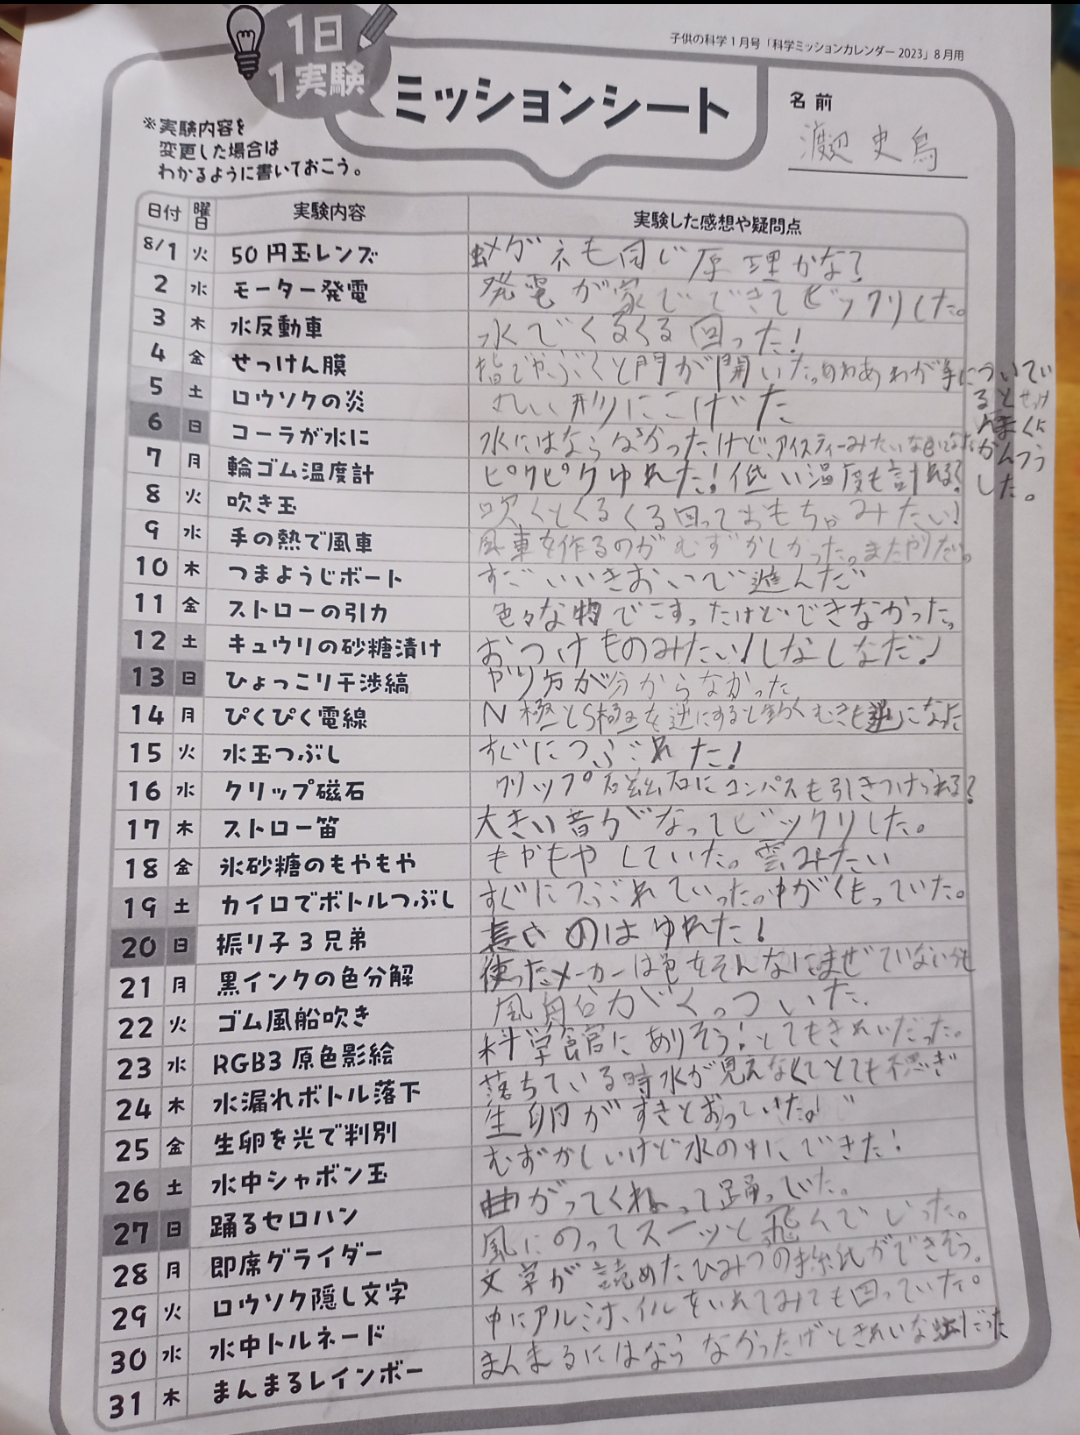 子供の科学1月号「科学ミッションカレンダー2023」8月用
1日
1実験
ミッションシート
名前
渡辺 史烏
※実験内容を
変更した場合は
わかるように書いておこう。
日付 曜日 実験内容 実験した感想や疑問点
8/1 火 50円玉レンズ 虫メガネも同じ原理かな?
2 水 モーター発電 発電が家でできてビックリした。
3 木 水反動車 水でくるくる回った!
4 金 せっけん膜 指でやぶくと門が開いた。あわが手についてい
ると
まくに
かんつう
した。
5 土 ロウソクの炎 丸い形にこげた
6 日 コーラが水に 水にはならなかったけど、アイスティーみたいな色になった
7 月 輪ゴム温度計 ピクピクゆれた!低い温度も計れる?
8 火 吹き玉 吹くとくるくる回っておもちゃみたい!
9 水 手の熱で風車 風車を作るのがむずかしかった。またやりたい。
10 木 つまようじボート すごいいきおいで進んだ
11 金 ストローの引力 色々な物でこすったけどできなかった。
12 土 キュウリの砂糖漬け おつけものみたい!しなしなだ!
13 日 ひょっこり干渉縞 やり方が分からなかった
14 月 ぴくぴく電線 N極とS極を逆にすると動くむきも逆になった
15 火 水玉つぶし すぐにつぶれた!
16 水 クリップ磁石 クリップ磁石にコンパスも引きつけられる?
17 木 ストロー笛 大きい音がなってビックリした。
18 金 氷砂糖のもやもや もやもやしていた。雲みたい
19 土 カイロでボトルつぶし すぐにつぶれていった。中がくもっていた。
20 日 振り子3兄弟 長さのはゆれた!
21 月 黒インクの色分解 使ったメーカーは色をそんなにまぜていない
22 火 ゴム風船吹き 風船がくっついた。
23 水 RGB3原色影絵 科学館にありそう!とてもきれいだった。
24 木 水漏れボトル落下 落ちている時水が見えなくてとても不思ぎ
25 金 生卵を光で判別 生卵がすきとおっていた。
26 土 水中シャボン玉 むずかしいけど水の中にできた!
27 日 踊るセロハン 曲がってくねって踊っていた。
28 月 即席グライダー 風にのってスーッと飛んでいった。
29 火 ロウソク隠し文字 文字が読めたひみつの手紙ができそう。
30 水 水中トルネード 中にアルミホイルをいれてみても回っていた。
31 木 まんまるレインボー まんまるにはならなかったけどきれいな虹だった